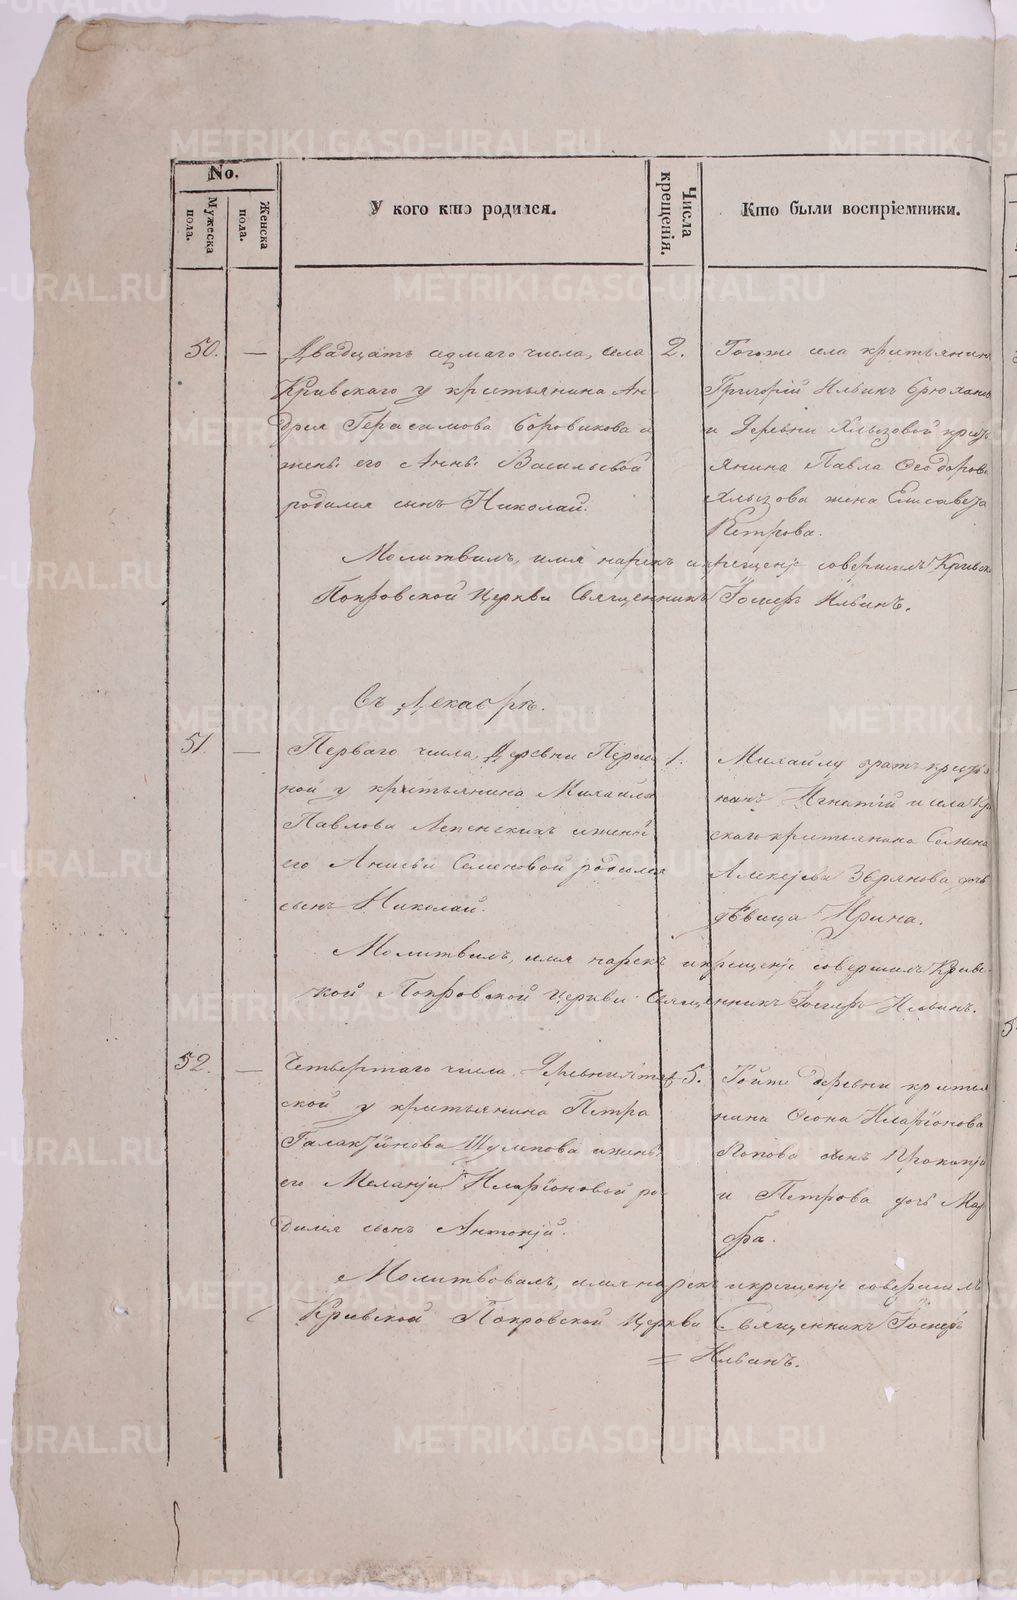 No.
Мужеска пола.
Женска пола.
У кого кто родился.
Числа крещенія.
Кто были воспріемники.
50. — Двадцать седмаго числа, села
Кривскаго у крестьянина Ан-
дрея Герасимова Боровикова и
жены его Анны Васильевой
родился сынъ Николай.
2.
Тогоже села крестьянинъ
Григорій Ильинъ Брюхановъ
и Деревни Хлызовой крест
янина Павла Ѳеодорова
Хлызова жена Елисавета
Петрова.
Молитвилъ, имя нарекъ и крещеніе совершилъ Кривск
Покровской Церкви Священникъ Іосифъ Ильинъ.
Въ Декабрѣ.
51. — Перваго числа, Деревни
ной у крестьянина Михайла
Павлова и жены
его Анисьи Семеновой родился
сынъ Николай.
1.
Михайлу братъ
Игнатій и села Кри
скаго крестьянина Семена
Алексѣева Зырянова дочь
дѣвица Ирина.
Молитвилъ, имя нарекъ и крещеніе совершилъ Кривс-
кой Покровской Церкви Священникъ Іосифъ Ильинъ.
52. — Четвертаго числа Деревни
ской у крестьянина Петра
Галактіонова и жены
его Меланіи Иларіоновой ро-
дился сынъ Антоній.
5.
Тойже деревни крестья
нина Иларіонова
Попова сынъ Прокопій
и Петрова дочь Мар
фа.
Молитвовалъ, имя нарекъ и крещеніе совершилъ
Кривской Покровской Церкви Священникъ Іосифъ
= Ильинъ.
METRIKI.GASO-URAL.RU